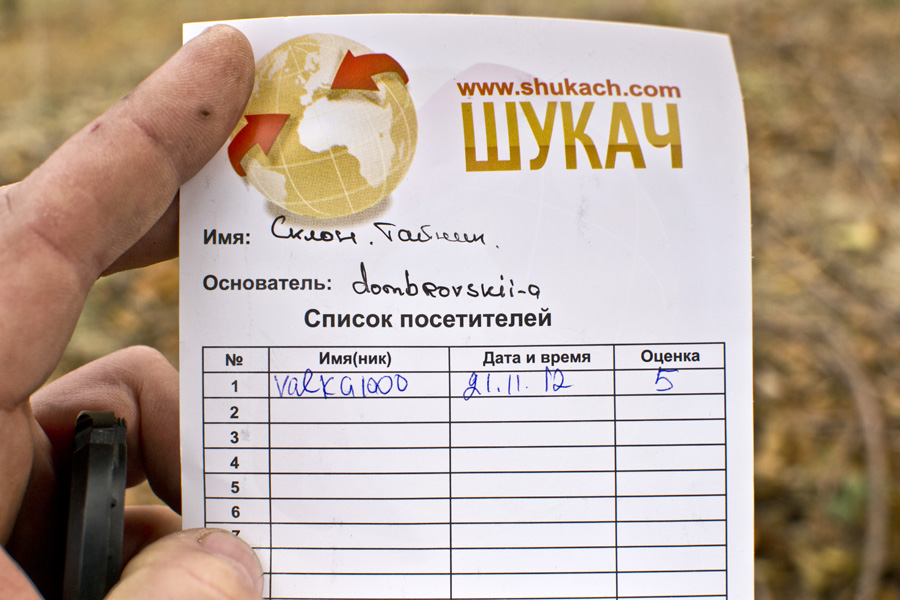 www.shukach.com
ШУКАЧ
Имя: Склон. Тайник.
Основатель: dombrovskii-a
Список посетителей
№ Имя(ник) Дата и время Оценка
1 valka1000 21.11.12 5
2
3
4
5
6
7